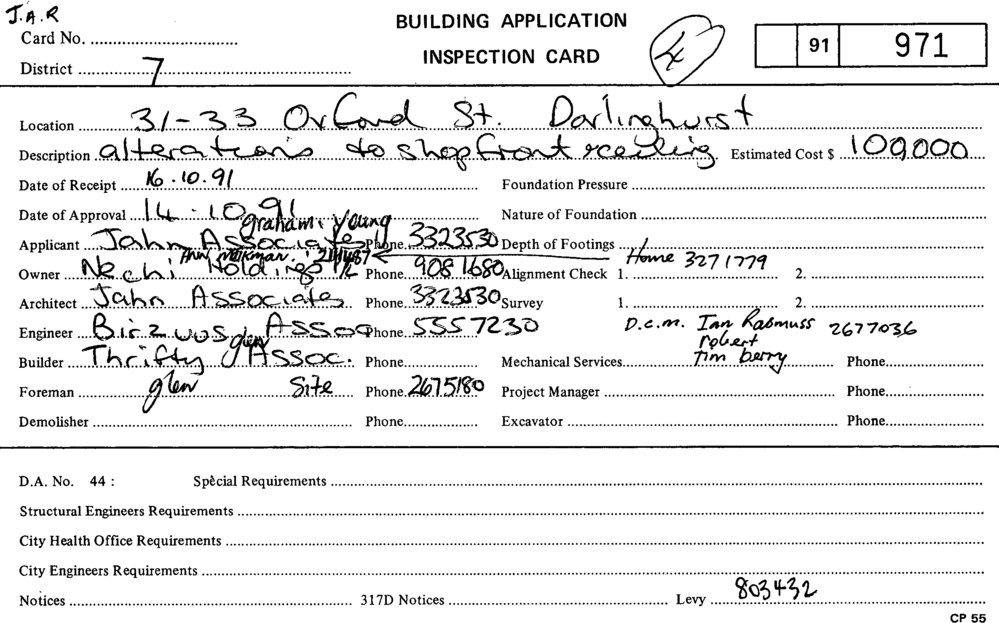 J.A.R
BUILDING APPLICATION
Card No.
91 971
INSPECTION CARD
District 7
Location 31-33 Oxford St. Darlinghurst
Description alterations to shopfront & ceiling Estimated Cost $ 100,000
Date of Receipt 16.10.91 Foundation Pressure
Date of Approval 14.10.91 Nature of Foundation
graham Young
Applicant Jahn Associates Phone 3323530 Depth of Footings
Home 3271779
Owner Nechi Holdings P/L Phone 9081680 Alignment Check 1. 2.
Architect Jahn Associates Phone 3323530 Survey 1. 2.
D.C.M. Ian Rasmuss 2677036
Engineer Assoc Phone 5557230
robert
glen
Tim berry
Builder Thrifty Assoc. Phone Mechanical Services Phone
Foreman glen Site Phone 2675180 Project Manager Phone
Demolisher Phone Excavator Phone
D.A. No. 44 : Special Requirements
Structural Engineers Requirements
City Health Office Requirements
City Engineers Requirements
Notices 317D Notices Levy 803432
CP 55